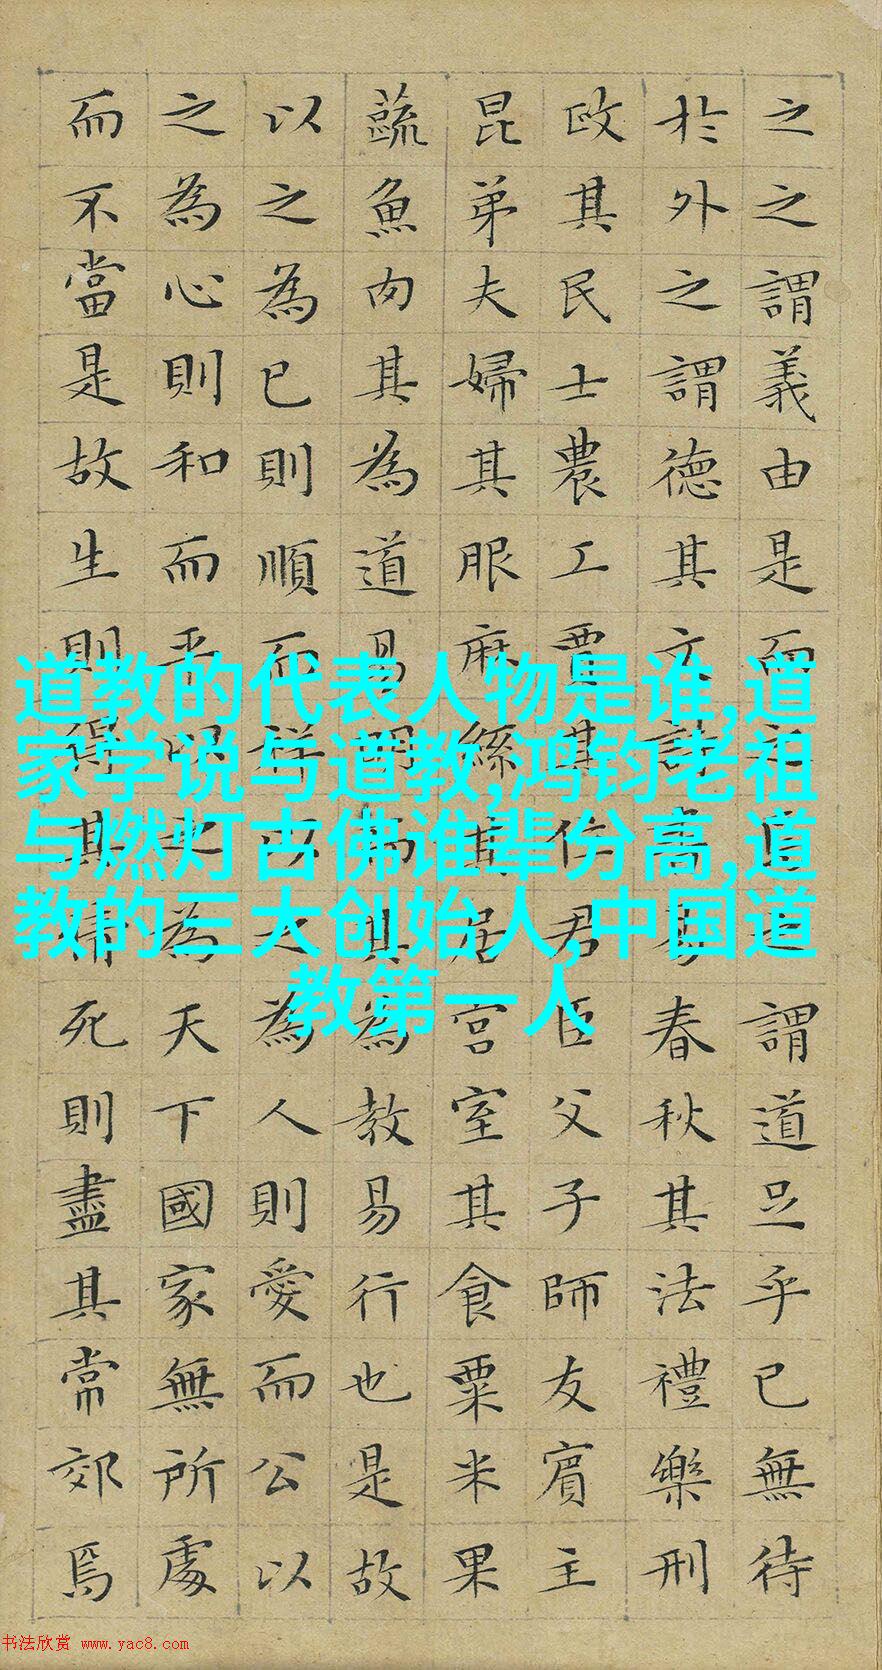 之之謂義由是而之焉之謂道足乎已無待
於外之謂德其文詩書易春秋其法禮樂刑
政其民士農工賈其位君臣父子師友賓主
昆弟夫婦其服麻絲其居宮室其食粟米果
蔬魚肉其為道易明而其為教易行也是故
以之為已則順而祥以之為人則愛而公以
之為心則和而平以之為天下國家無所處
而不當是故生則得其情死則盡其常郊焉
道教的代表人物是谁,道
家学说与道教,鸿钧老祖
与燃灯古佛谁辈分高,道
教的三大创始人,中国道
教第一人
书法欣赏 www.yac8.com